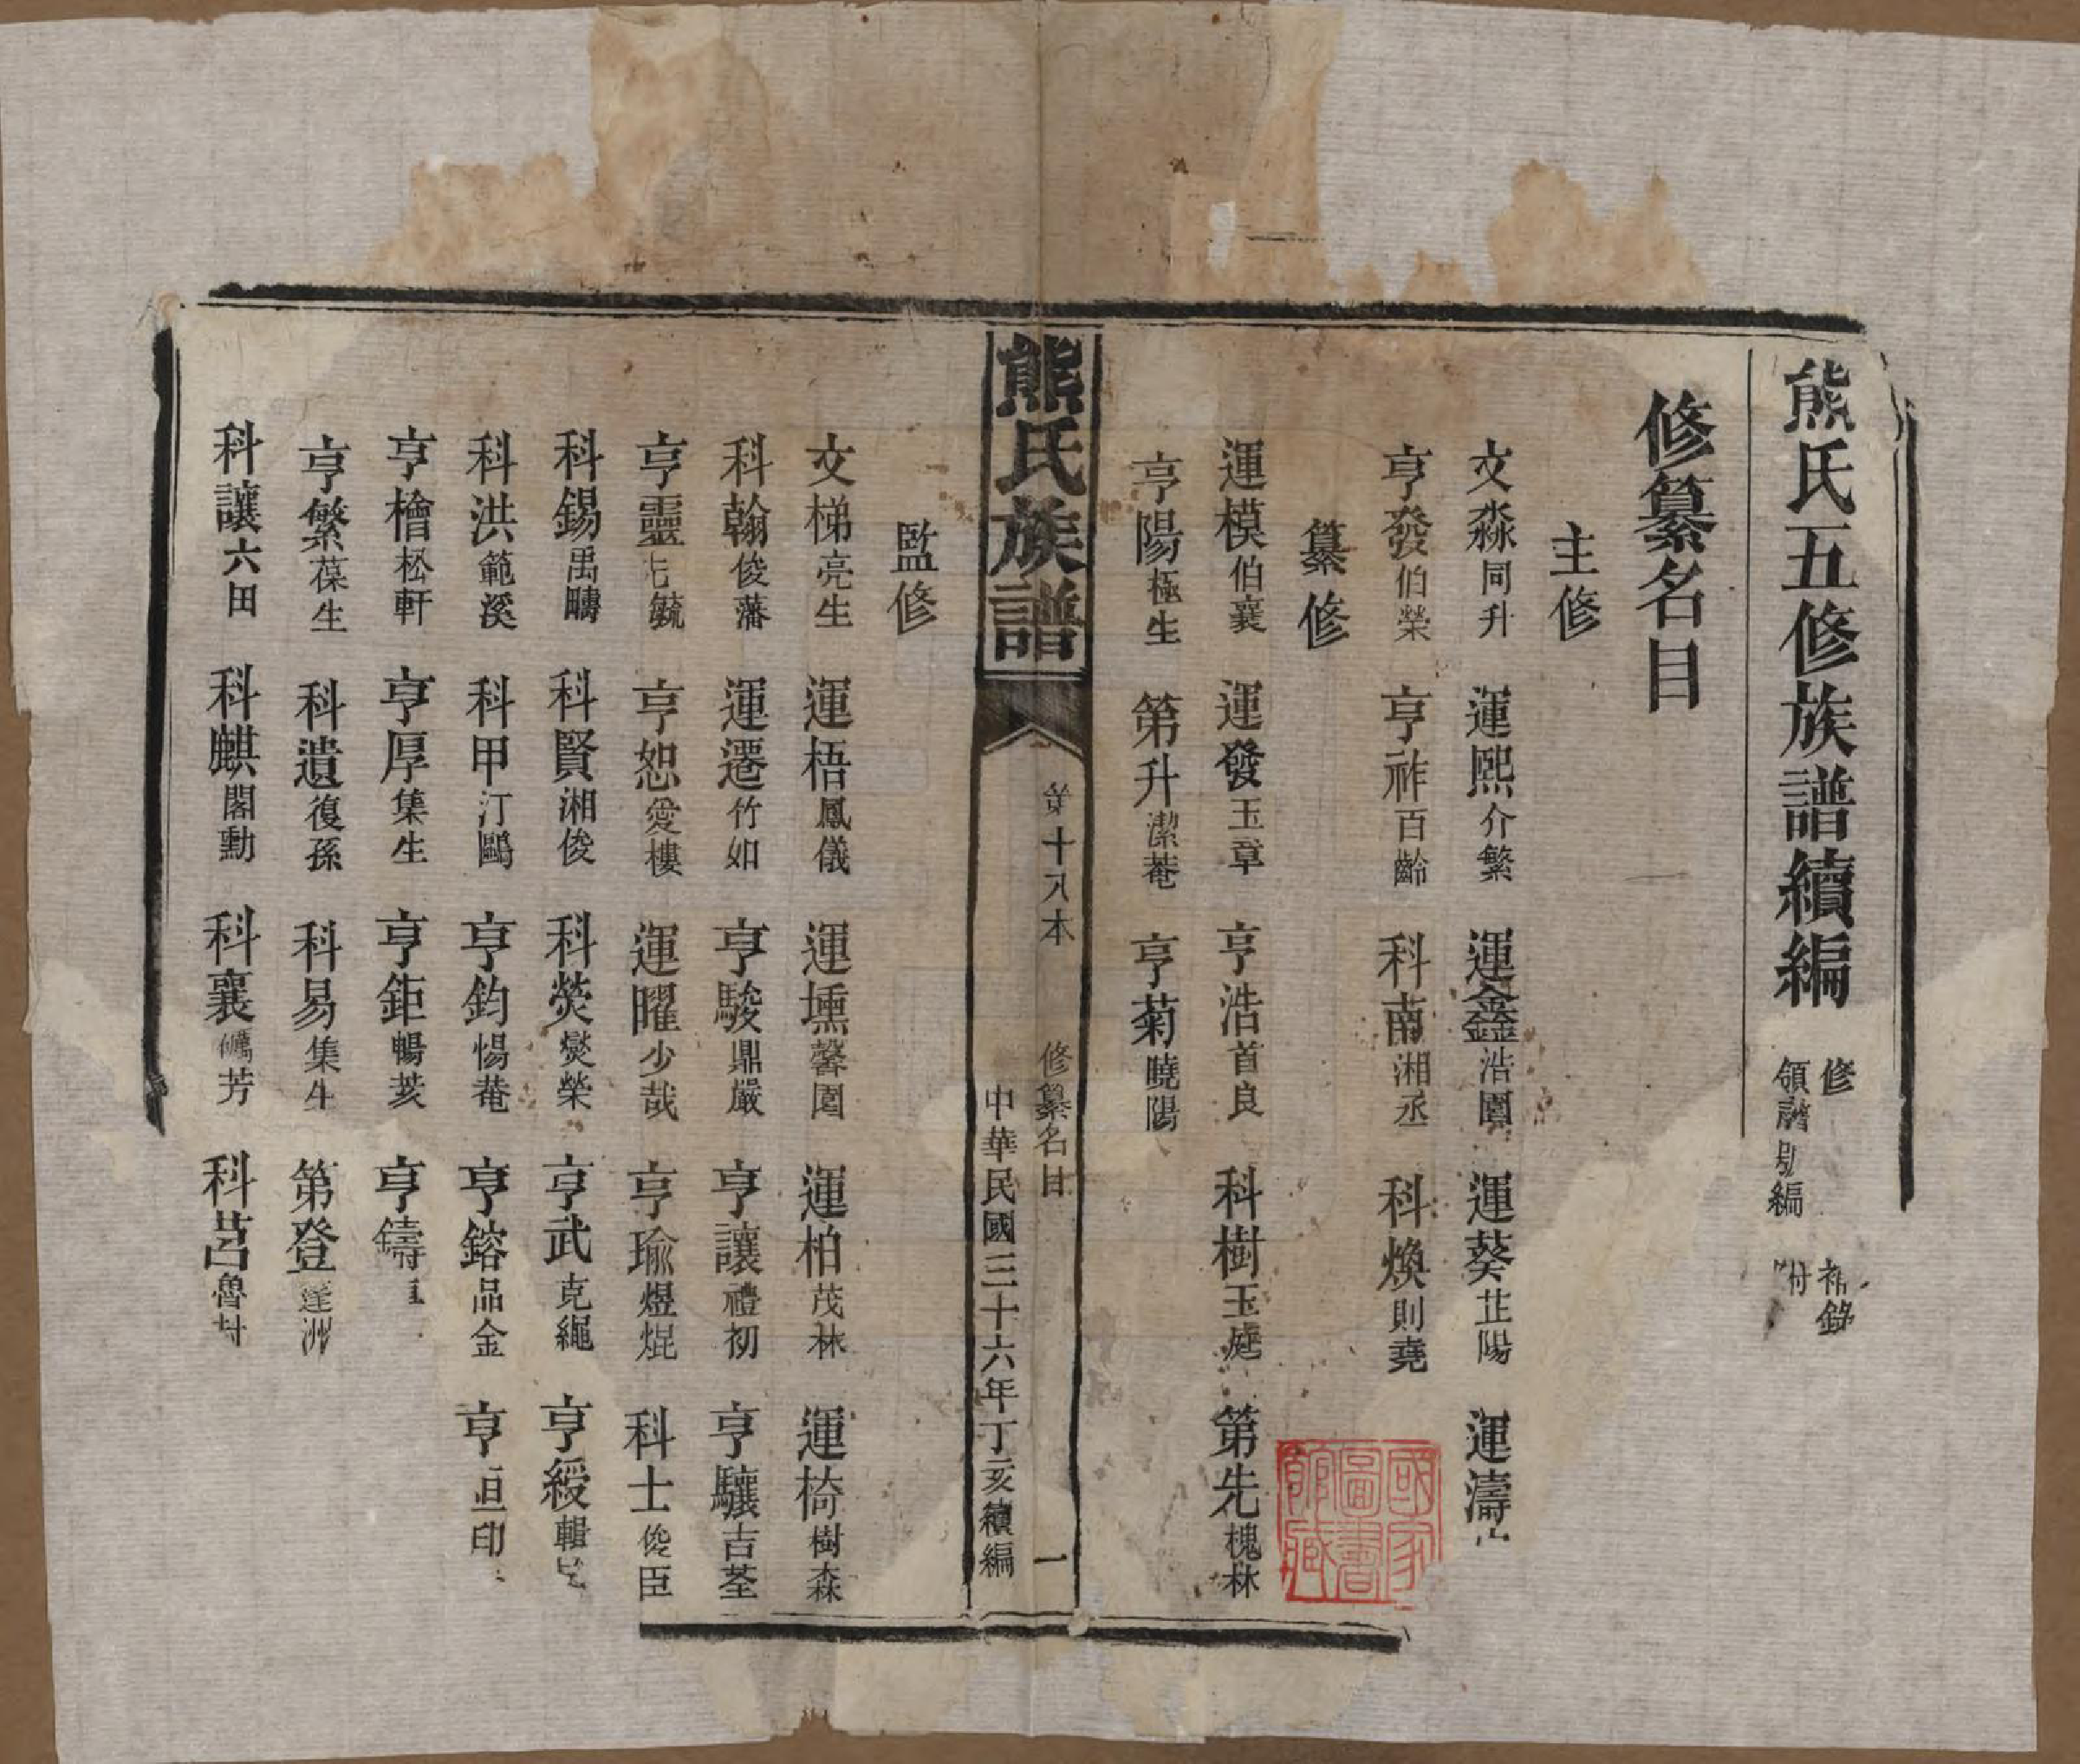 熊氏五修族譜續編 修 補錄
領譜 編 附
修纂名目
主修
文淼同升 運熙介繁 運鑫浩園 運葵芷陽 運濤
亨發伯榮 亨祚百齡 科萳湘丞 科煥則堯
纂修
運模伯襄 運發玉章 亨浩首良 科樹玉庭 第先槐林
亨陽極生 第升潔菴 亨菊曉陽
熊氏族譜 第十八本 修纂名目 一
中華民國三十六年丁亥續編
監修
文梯亮生 運梧鳳儀 運壎馨園 運柏茂林 運椅樹森
科翰俊藩 運遷竹如 亨駿鼎嚴 亨讓禮初 亨驤吉荃
亨靈毓 亨恕愛樓 運曜少哉 亨瑜煜焜 科士俊臣
科錫禹疇 科賢湘俊 科熒燮榮 亨武克繩 亨綬輯
科洪範溪 科甲汀鷗 亨鈞惕菴 亨鎔品金 亨 印
亨檜松軒 亨厚集生 亨鉅暢荄 亨鑄
亨繁葆生 科遺復孫 科易集生 第登蓬洲
科讓六田 科麒閣勳 科襄芳 科莒魯封
國家圖書館藏